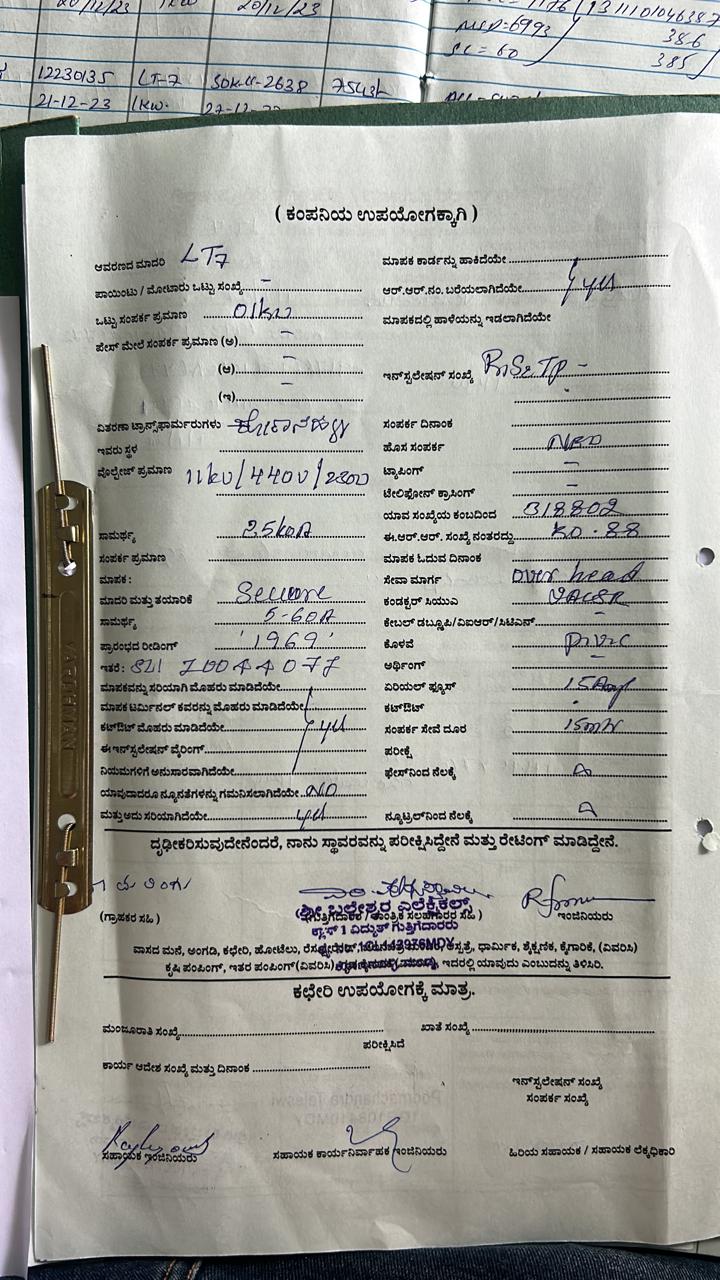 20/12/23
MCD=6993
SC = 60
386
385
12230135 LT-7
21-12-23 1KW.
( ಕಂಪನಿಯ ಉಪಯೋಗಕ್ಕಾಗಿ )
ಆವರಣದ ಮಾದರಿ LT7
ಪಾಯಿಂಟು / ಮೋಟಾರು ಒಟ್ಟು ಸಂಖ್ಯೆ -
ಒಟ್ಟು ಸಂಪರ್ಕ ಪ್ರಮಾಣ 01kw
ಫೇಸ್ ಮೇಲೆ ಸಂಪರ್ಕ ಪ್ರಮಾಣ (ಅ) -
(ಆ) -
(ಇ) -
ವಿತರಣಾ ಟ್ರಾನ್ಸ್‌ಫಾರ್ಮರುಗಳು
ಇವರು ಸ್ಥಳ
ವೊಲ್ಟೇಜ್ ಪ್ರಮಾಣ 11kv/440v/
ಸಾಮರ್ಥ್ಯ 25kVA
ಸಂಪರ್ಕ ಪ್ರಮಾಣ
ಮಾಪಕ :
ಮಾದರಿ ಮತ್ತು ತಯಾರಿಕೆ Secure
ಸಾಮರ್ಥ್ಯ 5-60A
ಪ್ರಾರಂಭದ ರೀಡಿಂಗ್ '1969'
ಇತರೆ : 70044077
ಮಾಪಕವನ್ನು ಸರಿಯಾಗಿ ಮೊಹರು ಮಾಡಿದೆಯೇ
ಮಾಪಕ ಟರ್ಮಿನಲ್ ಕವರನ್ನು ಮೊಹರು ಮಾಡಿದೆಯೇ
ಕಟ್‌ಔಟ್ ಮೊಹರು ಮಾಡಿದೆಯೇ yes
ಈ ಇನ್‌ಸ್ಟಲೇಷನ್ ವೈರಿಂಗ್
ನಿಯಮಗಳಿಗೆ ಅನುಸಾರವಾಗಿದೆಯೇ
ಯಾವುದಾದರೂ ನ್ಯೂನತೆಗಳನ್ನು ಗಮನಿಸಲಾಗಿದೆಯೇ NO
ಮತ್ತು ಅದು ಸರಿಯಾಗಿದೆಯೇ yes
ಮಾಪಕ ಕಾರ್ಡನ್ನು ಹಾಕಿದೆಯೇ
ಆರ್.ಆರ್.ನಂ. ಬರೆಯಲಾಗಿದೆಯೇ yes
ಮಾಪಕದಲ್ಲಿ ಹಾಳೆಯನ್ನು ಇಡಲಾಗಿದೆಯೇ
ಇನ್‌ಸ್ಟಲೇಷನ್ ಸಂಖ್ಯೆ
ಸಂಪರ್ಕ ದಿನಾಂಕ
ಹೊಸ ಸಂಪರ್ಕ
ಟ್ಯಾಪಿಂಗ್ -
ಟೇಲಿಫೋನ್ ಕ್ರಾಸಿಂಗ್ -
ಯಾವ ಸಂಖ್ಯೆಯ ಕಂಬದಿಂದ
ಈ.ಆರ್.ಆರ್. ಸಂಖ್ಯೆ ನಂತರದ್ದು
ಮಾಪಕ ಓದುವ ದಿನಾಂಕ
ಸೇವಾ ಮಾರ್ಗ over head
ಕಂಡಕ್ಟರ್ ಸಿಯುಎ
ಕೇಬಲ್ ಡಬ್ಲೂಪಿ/ವಿಐಆರ್/ಸಿಟಿಎಸ್
ಕೊಳವೆ P.V.C
ಅರ್ಥಿಂಗ್ -
ಏರಿಯಲ್ ಫ್ಯೂಸ್ 15Amp
ಕಟ್‌ಔಟ್
ಸಂಪರ್ಕ ಸೇವೆ ದೂರ
ಪರೀಕ್ಷೆ
ಫೇಸ್‌ನಿಂದ ನೆಲಕ್ಕೆ
ನ್ಯೂಟ್ರಲ್‌ನಿಂದ ನೆಲಕ್ಕೆ
ದೃಢೀಕರಿಸುವುದೇನೆಂದರೆ, ನಾನು ಸ್ಥಾವರವನ್ನು ಪರೀಕ್ಷಿಸಿದ್ದೇನೆ ಮತ್ತು ರೇಟಿಂಗ್ ಮಾಡಿದ್ದೇನೆ.
(ಗ್ರಾಹಕರ ಸಹಿ)
ಶ್ರೀ ಬಲ್ಲೇಶ್ವರ ಎಲೆಕ್ಟ್ರಿಕಲ್ಸ್
ಇಂಜಿನಿಯರು
ಕ್ಲಾಸ್ 1 ವಿದ್ಯುತ್ ಗುತ್ತಿಗೆದಾರರು
ವಾಸದ ಮನೆ, ಅಂಗಡಿ, ಕಛೇರಿ, ಹೋಟೆಲು, ಧಾರ್ಮಿಕ, ಶೈಕ್ಷಣಿಕ, ಕೈಗಾರಿಕೆ, (ವಿವರಿಸಿ)
ಕೃಷಿ ಪಂಪಿಂಗ್, ಇತರ ಪಂಪಿಂಗ್(ವಿವರಿಸಿ) ಇದರಲ್ಲಿ ಯಾವುದು ಎಂಬುದನ್ನು ತಿಳಿಸಿರಿ.
ಕಛೇರಿ ಉಪಯೋಗಕ್ಕೆ ಮಾತ್ರ.
ಮಂಜೂರಾತಿ ಸಂಖ್ಯೆ ಖಾತೆ ಸಂಖ್ಯೆ
ಪರೀಕ್ಷಿಸಿದೆ
ಕಾರ್ಯ ಆದೇಶ ಸಂಖ್ಯೆ ಮತ್ತು ದಿನಾಂಕ
ಇನ್‌ಸ್ಟಲೇಷನ್ ಸಂಖ್ಯೆ
ಸಂಪರ್ಕ ಸಂಖ್ಯೆ
ಸಹಾಯಕ ಇಂಜಿನಿಯರು ಸಹಾಯಕ ಕಾರ್ಯನಿರ್ವಾಹಕ ಇಂಜಿನಿಯರು ಹಿರಿಯ ಸಹಾಯಕ / ಸಹಾಯಕ ಲೆಕ್ಕಾಧಿಕಾರಿ